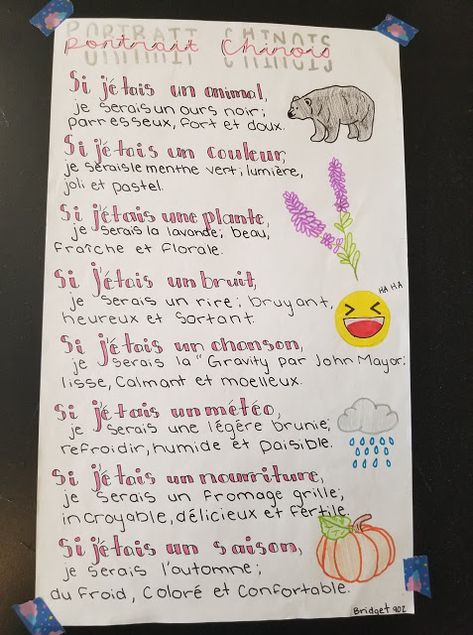 PORTRAIT CHINOIS
portrait chinois
Si j'étais un animal,
je serais un ours noir;
parresseux, fort et doux.
Si j'étais un couleur,
je serais le menthe vert; lumière,
joli et pastel.
Si j'étais une plante,
je serais la lavande; beau,
fraîche et florale.
Si j'étais un bruit,
je serais un rire; bruyant,
heureux et sortant.
HA HA
Si j'étais un chanson,
je serais la "Gravity par John Mayor:
lisse, calmant et moelleux.
Si j'étais un météo,
je serais une légère brunie;
refroidir, humide et paisible.
Si j'étais un nourriture,
je serais un fromage grille;
incroyable, délicieux et fertile.
Si j'étais un saison,
je serais l'automne;
du froid, coloré et confortable.
Bridget 902